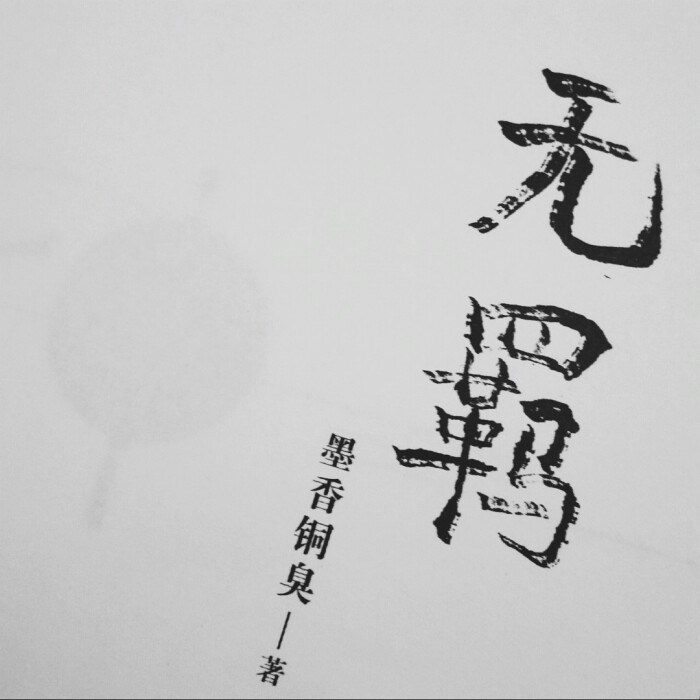 无羁
墨香铜臭—著